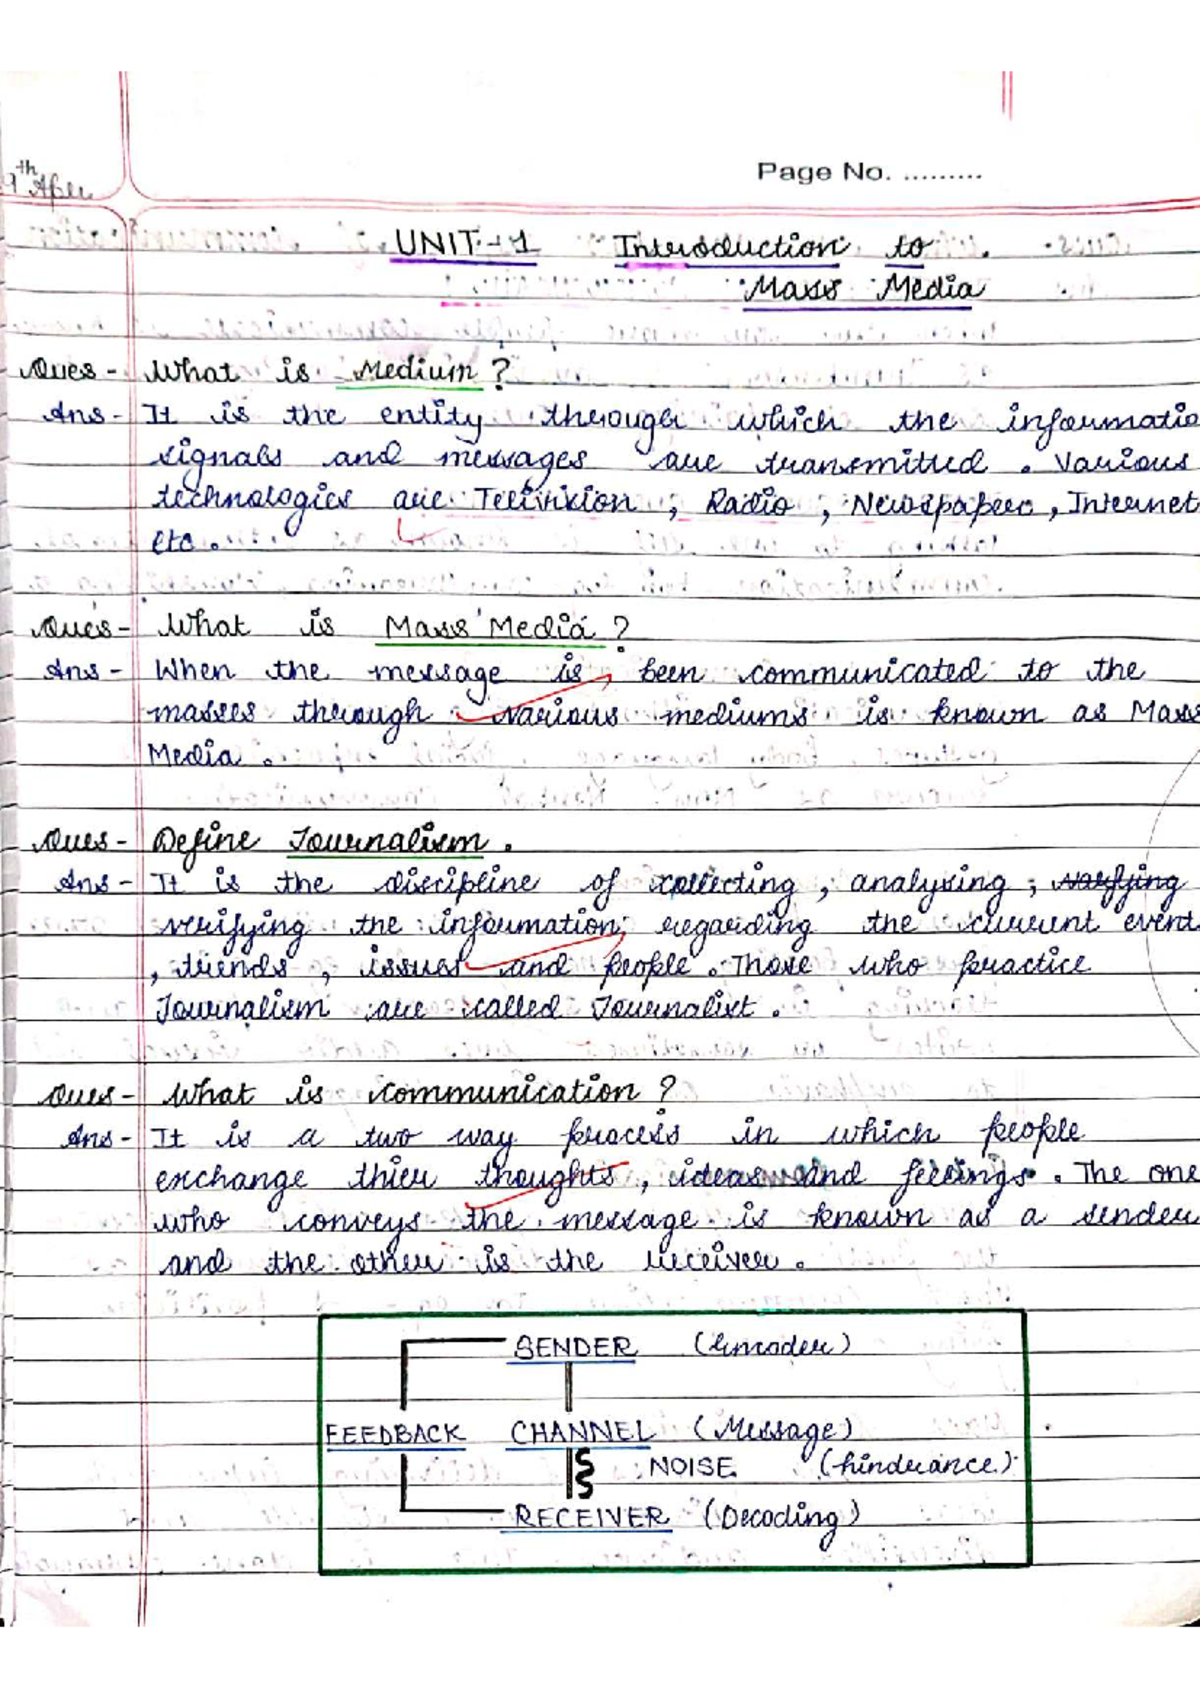 9th Apr
Page No. .........
UNIT - 1 Introduction to
Mass Media
Ques - What is Medium ?
Ans - It is the entity through which the informatio
signals and messages are transmitted . Various
technologies are Television , Radio , Newspaper , Internet
etc .
Ques - What is Mass Media ?
Ans - When the message is been communicated to the
masses through various mediums is known as Mass
Media .
Ques - Define Journalism .
Ans - It is the discipline of collecting , analysing ,
verifying the information regarding the current event
, trends , issues and people . Those who practice
Journalism are called Journalist .
Ques - What is communication ?
Ans - It is a two way process in which people
exchange thier thoughts , ideas and feelings . The one
who conveys the message is known as a sender
and the other is the receiver .
SENDER (Encoder)
FEEDBACK CHANNEL (Message)
NOISE (hinderance)
RECEIVER (Decoding)